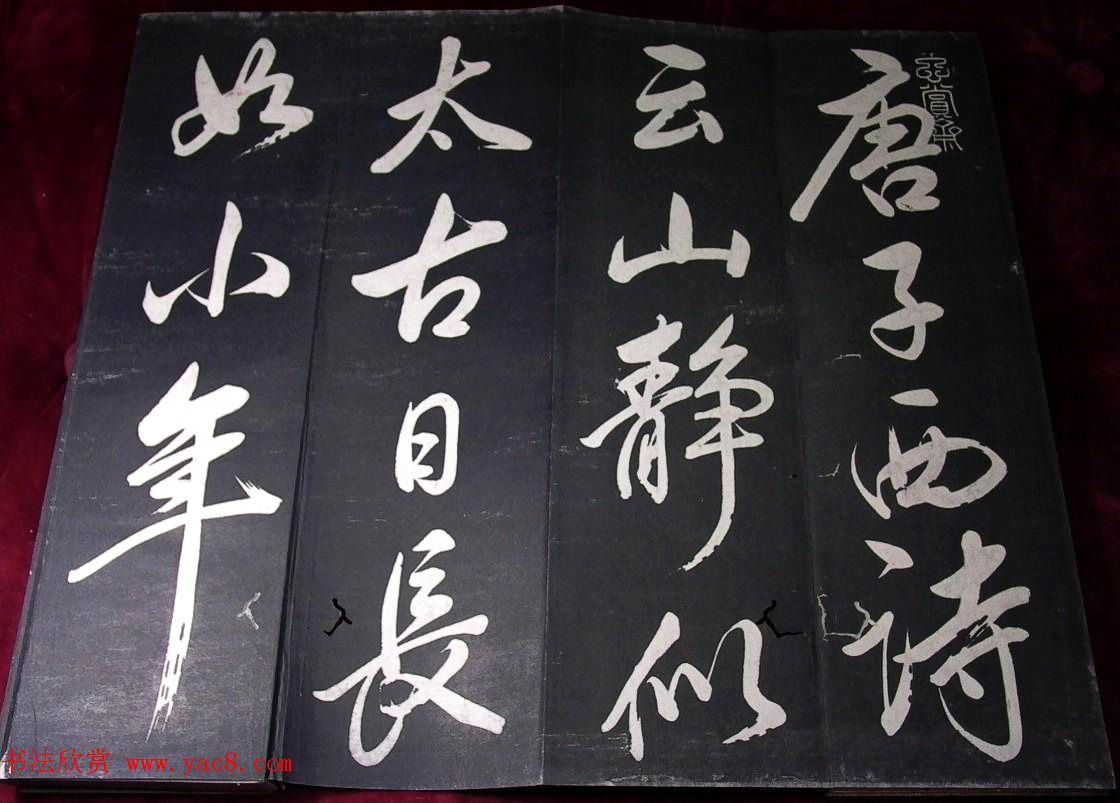 唐子西詩
云山靜似
太古日長
如小年
书法欣赏 www.yac8.com